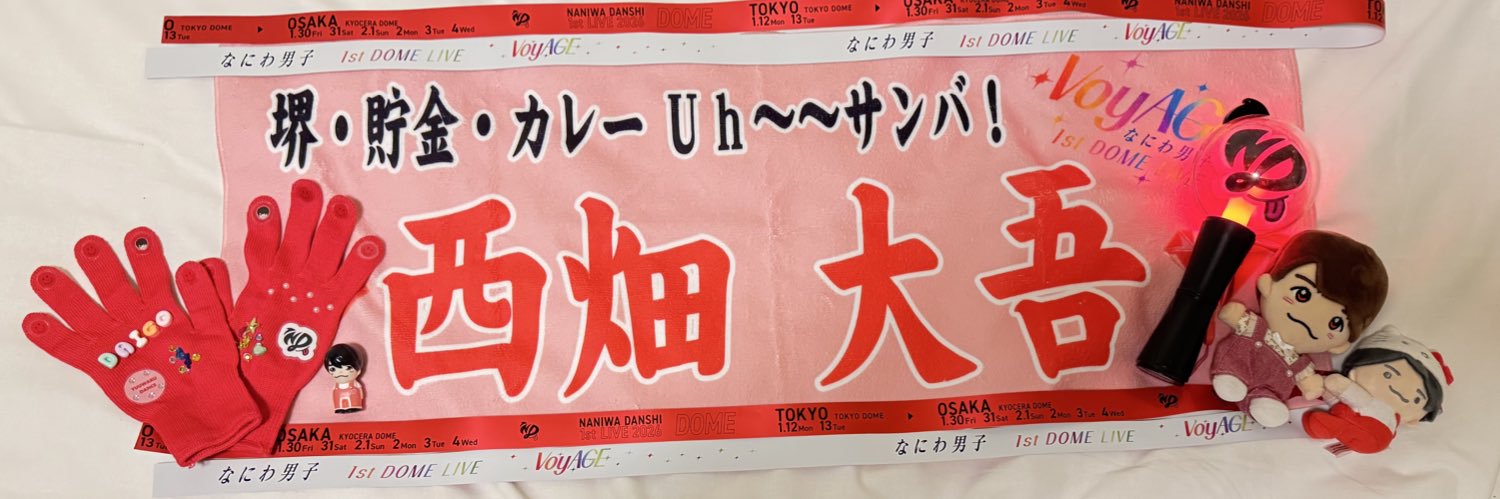 13 Tue TOKYO DOME ▶ OSAKA KYOCERA DOME 1.30 Fri 31 Sat 2.1 Sun 2 Mon 3 Tue 4 Wed NANIWA DANSHI 1st LIVE 2026 DOME TOKYO TOKYO DOME 1.12 Mon 13 Tue ▶ OSAKA 1.30 Fri 31 Sat 2.1 Sun 2 Mon 3 Tue 4 Wed NANIWA DANSHI 1st LIVE 2026 DOME
なにわ男子 1st DOME LIVE VoyAGE なにわ男子 1st DOME LIVE VoyAGE
堺・貯金・カレーUh〜〜サンバ！
VoyAGE
なにわ男子
1st DOME
西畑 大吾
DAIGO
YUUWAKU DANCE
OSAKA KYOCERA DOME 1.30 Fri 31 Sat 2.1 Sun 2 Mon 3 Tue 4 Wed NANIWA DANSHI 1st LIVE 2026 DOME TOKYO TOKYO DOME 1.12 Mon 13 Tue ▶ OSAKA KYOCERA DOME 1.30 Fri 31 Sat 2.1 Sun 2 Mon 3 Tue 4 Wed NANIWA DANSHI 1st LIVE 2026
なにわ男子 1st DOME LIVE VoyAGE なにわ男子 1st DOME LIVE VoyAGE